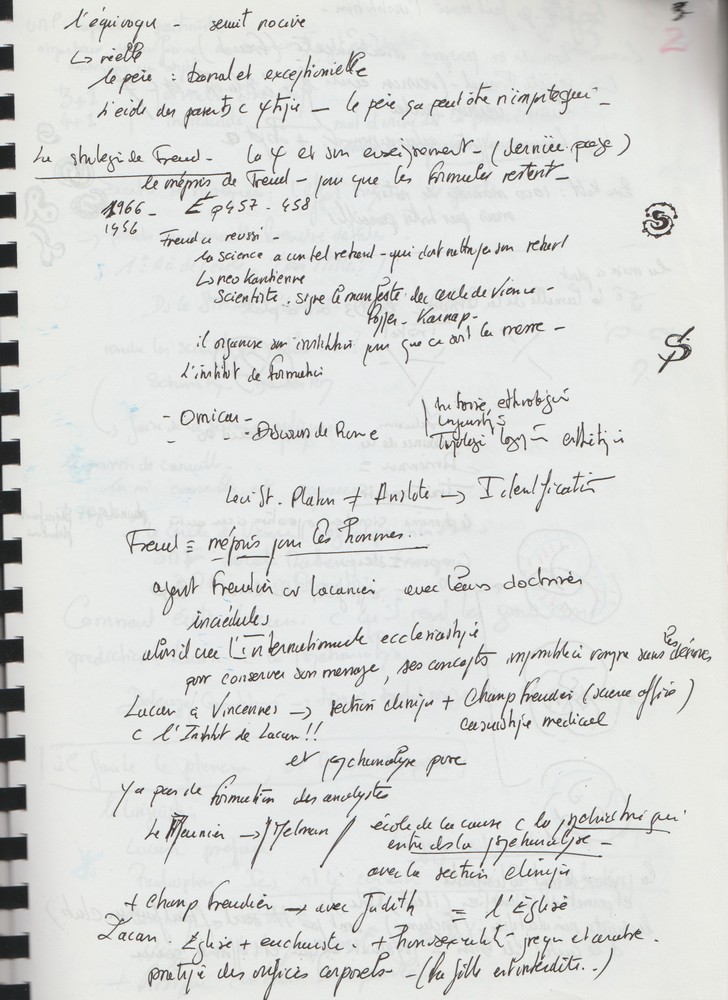 3
2
l'équivoque - serait nocive
↳ réelle
le père : banal et exceptionnelle
L'école des parents c ψtique — le père ça peut être n'importe qui -
La stratégie de Freud - la ψ et son enseignement - (dernière page)
le mépris de Freud - pour que les formules restent -
1966 - É p 457 - 458
1956
Freud a réussi -
la science a un tel retard - qui doit son retard
↳ neo kantienne
Scientiste . signe le manifeste du cercle de Vienne -
Popper - Karnap -
il organise son institution pour que ce soit la messe -
L'institut de formation
- Ornicar -
- - Discours de Rome
histoire, ethnologie
linguistique
Topologie logique esthétique
Levi St. Platon ≠ Aristote → Identification
Freud ≡ mépris pour les hommes.
ayant freudien ou lacanien avec leurs doctrines
incrédules
alors il crée l'internationale ecclésiastique
pour conserver son message, ses concepts impossible à rompre sans les dérives
Lacan à Vincennes → section clinique + Champ freudien (science officielle)
c l'Institut de Lacan !! casuistique medical
et psychanalyse pure
Y a pas de formation des analystes
Le Meunier → / Melman / école de la cause c la psychiatrie qui
entre ds la psychanalyse -
avec la section clinique
+ Champ freudien → avec Judith ≡ l'Église
Lacan . Église + eucharistie . + Homosexualité - grecque et arabe .
pratique des orifices corporels - (la fille est interdite..)
S
$